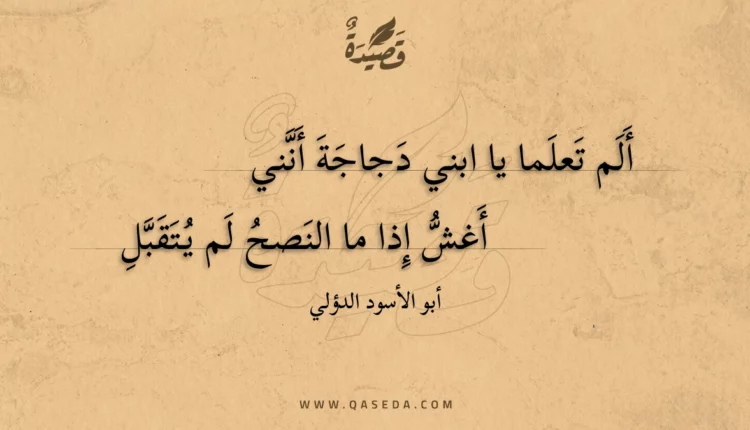 قَصِيدَةٌ
أَلَم تَعلَما يا ابني دَجاجَةَ أَنَّني
أَغشُّ إِذا ما النَصحُ لَم يُتَقَبَّلِ
أبو الأسود الدؤلي
WWW.QASEDA.COM